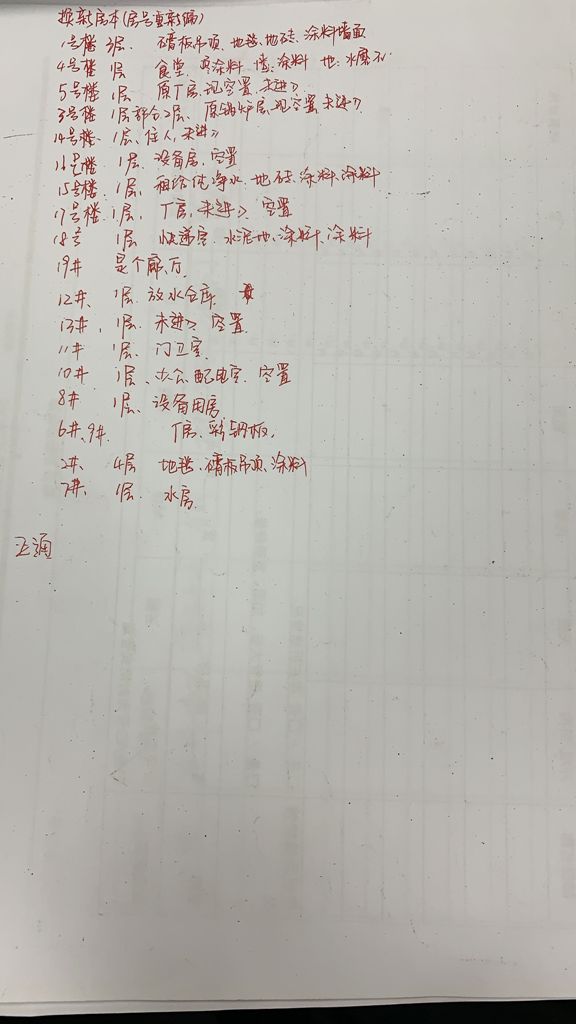 换新房本(房号重新编)
1号楼 3层 硅板吊顶、地毯、地砖、涂料墙面
4号楼 1层 食堂、顶涂料 墙:涂料 地:水磨石
5号楼 1层 原厂房、现空置、未进入
3号楼 1层部分2层、原锅炉房、现空置、未进入
14号楼 1层、住人、未进入
16号楼 1层、设备房、空置
15号楼、1层、租给纯净水、地砖、涂料、涂料
17号楼、1层、厂房、未进入、空置
18号 1层 快递室、水泥地、涂料、涂料
19# 是个廊、厅
12#、1层、放水仓库
13#、1层、未进入、空置
11# 1层、门卫室
10# 1层、办公、配电室、空置
8# 1层、设备用房
6#、9# 厂房、彩钢板、
2#、4层 地毯、硅板吊顶、涂料
7#、1层 水房
正通